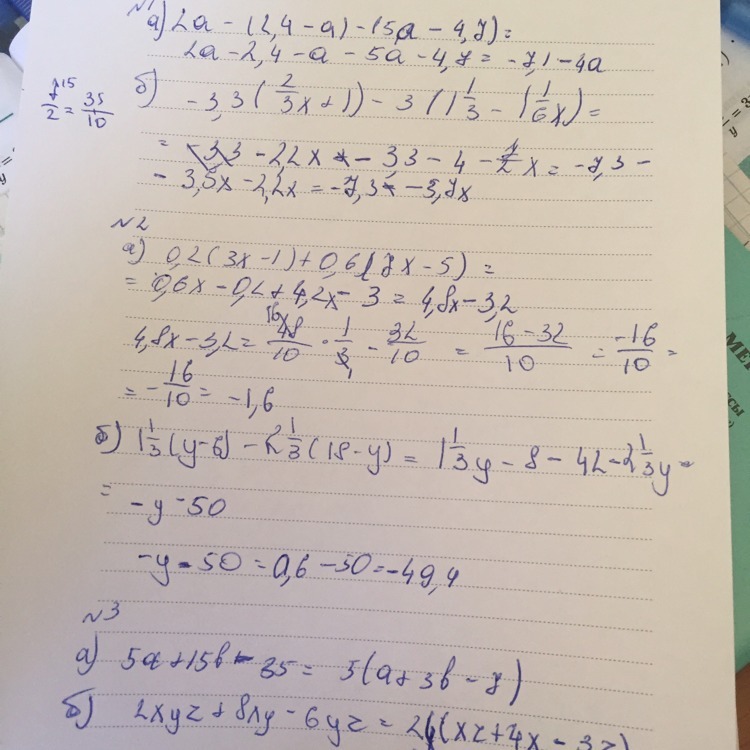 №1
а) 2a - (2,4 - a) - (5a - 4,7) =
2a - 2,4 - a - 5a - 4,7 = -7,1 - 4a
7/2 = 35/10
б) -3,3 (2/3x + 1) - 3 (1 1/3 - 1 1/6x) =
- 2,2x - 3,3 - 4 - 7/2 x = -7,3 -
- 3,5x - 2,2x = -7,3 - 5,7x
№2
а) 0,2(3x - 1) + 0,6(7x - 5) =
= 0,6x - 0,2 + 4,2x - 3 = 4,8x - 3,2
4,8x - 3,2 = 48/10 · 1/3 - 32/10 = 16 - 32/10 = -16/10 =
= -16/10 = -1,6
б) 1 1/3 (y - 6) - 2 1/3 (18 - y) = 1 1/3 y - 8 - 42 - 2 1/3 y =
= -y - 50
-y - 50 = 0,6 - 50 = -49,4
№3
а) 5a + 15b - 35 = 5(a + 3b - 7)
б) 2xyz + 8xy - 6yz = 2y(xz + 4x - 3z)